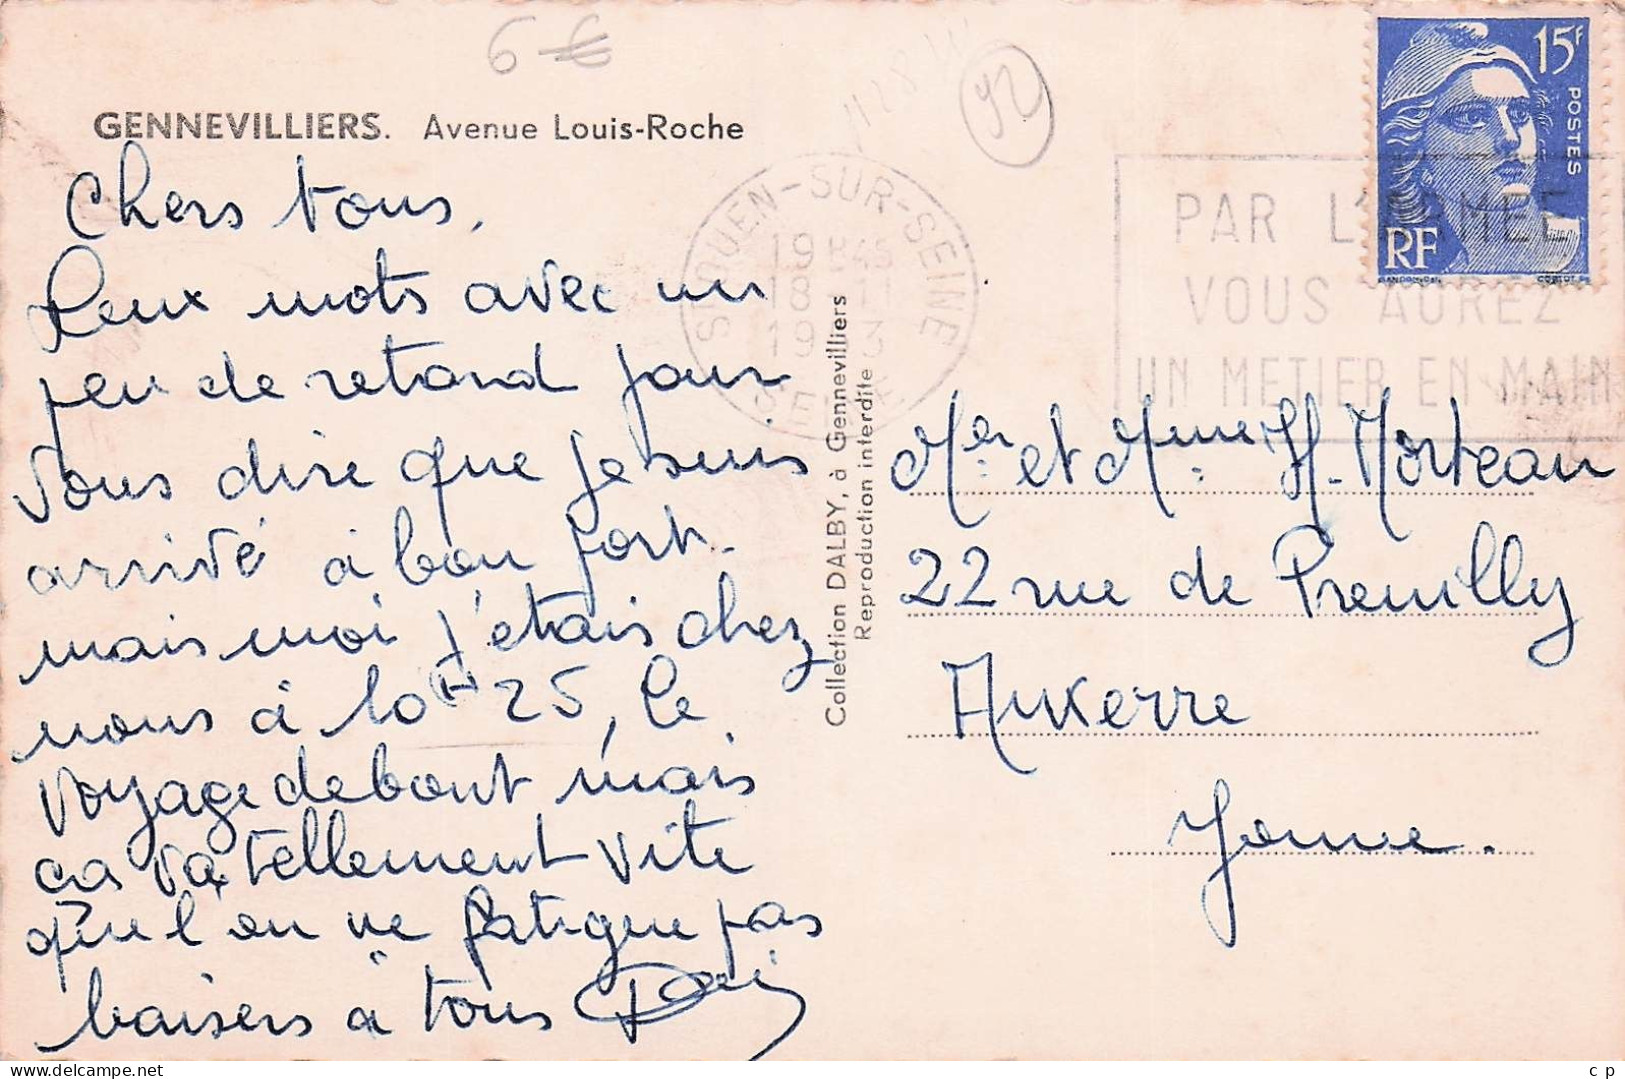 6 €
GENNEVILLIERS. Avenue Louis-Roche
92
Chers tous,
Deux mots avec un
peu de retard pour
vous dire que je suis
arrivé à bon port.
mais moi j'étais chez
nous à 10 H 25, le
voyage debout mais
ca va tellement vite
que l'on ne fatigue pas
baisers à tous
Collection DALBY, à Gennevilliers
Reproduction interdite
ST OUEN-SUR-SEINE
19 H 45
18 - 11
19 3
SEINE
PAR L'ARMEE
VOUS AUREZ
UN METIER EN MAIN
15F
POSTES
RF
GANDON-DEL.
Mr et Mme H. Morteau
22 rue de Preuilly
Auxerre
Yonne.
delcampe.net
c p